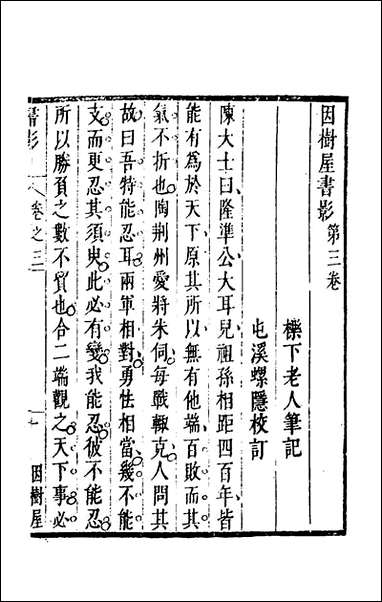 因樹屋書影第三卷
櫟下老人筆記
屯溪螺隱校訂
陳大士曰隆準公大耳兒祖孫相距四百年皆
能有為於天下原其所以無有他端百敗而其
氣不折也陶荆州愛將朱伺每戰輙克人問其
故曰吾特能忍耳兩軍相對勇怯相當幾不能
支而更忍其須臾此必有變我能忍彼不能忍
所以勝負之數不貿也合二端觀之天下事必
書影
卷之三
一
因樹屋